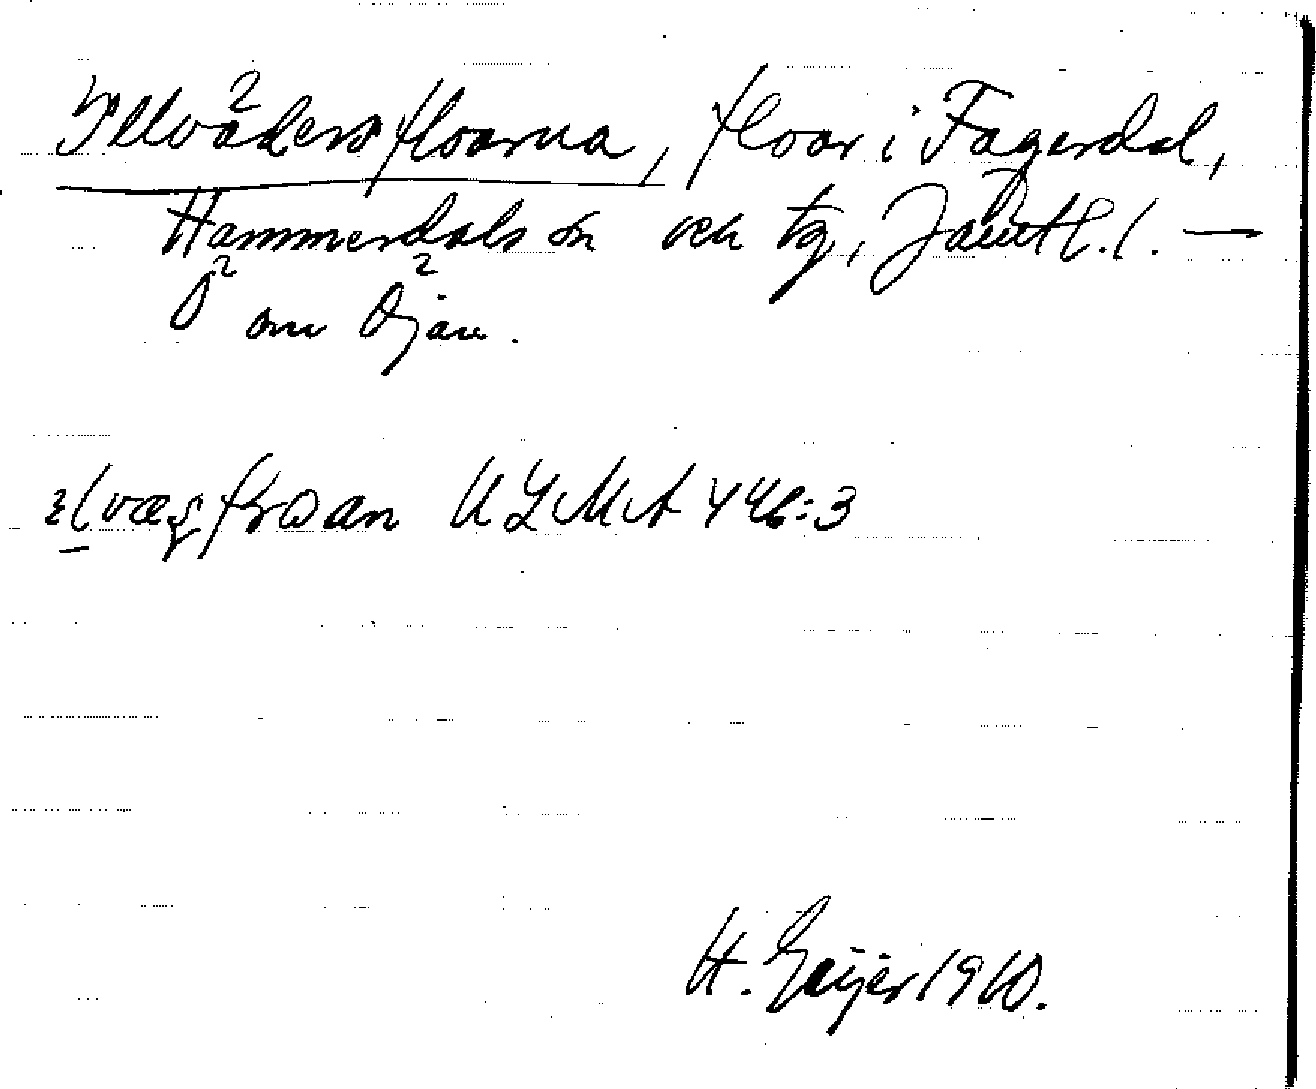 Illvädersfloarna, floar i Fagerdal,
Hammerdals sn och tg, Jämtl. l. —
Ö om Öjån.
ULMA 446:3
H. Geijer 1960.